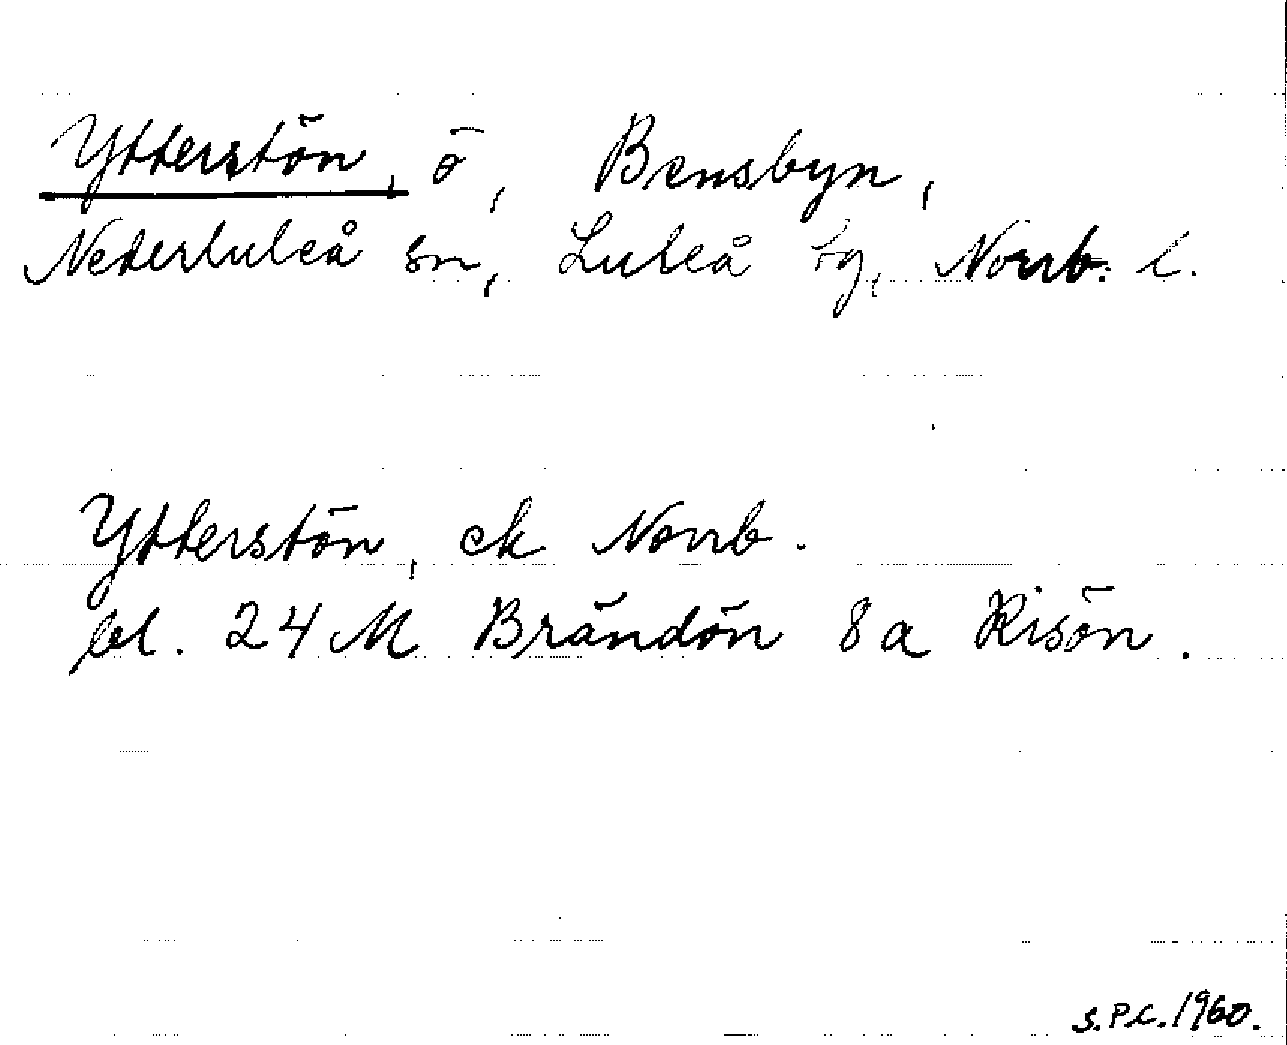 Ytterstön, ö, Bensbyn,
Nederluleå sn, Luleå tg, Norrb. l.
Ytterstön, ek Norrb.
bl. 24 M Brändön 8a Risön.
S.P.C. 1960.